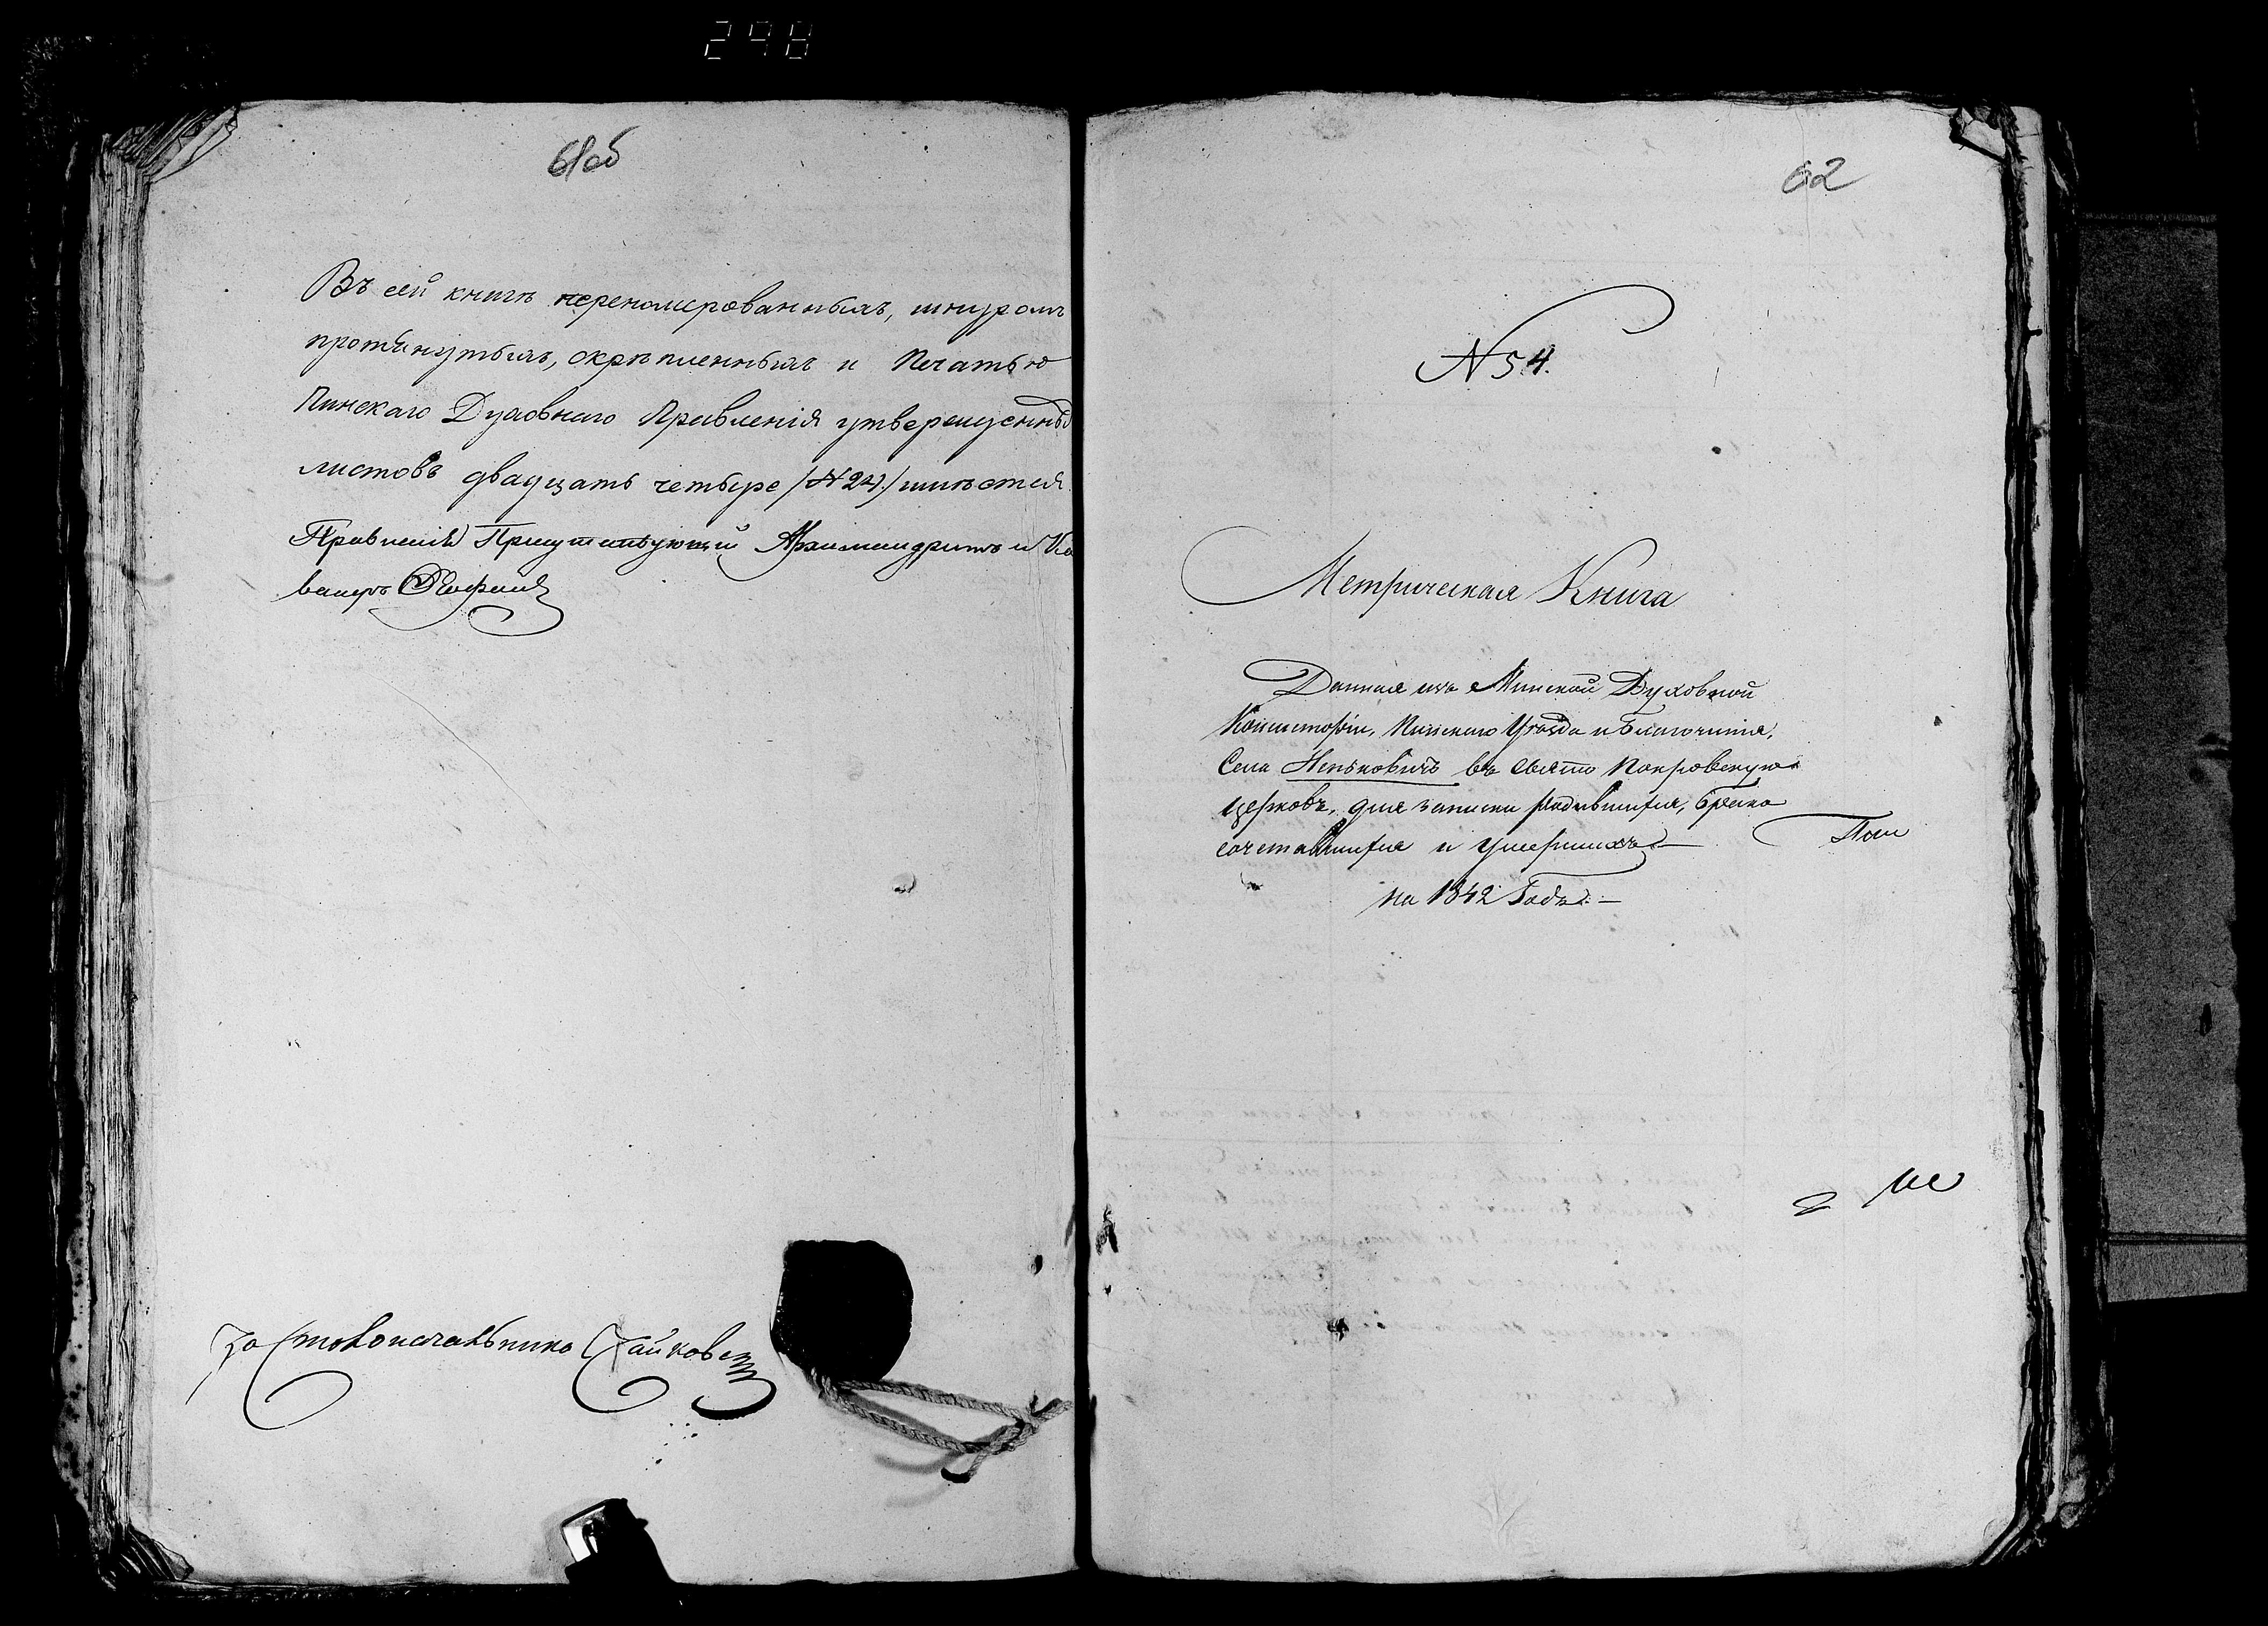 298
61об
Въ сей книгѣ перенумерованныхъ, шнуромъ
протянутыхъ, скрѣпленныхъ и Печатью
Пинскаго Духовнаго Правленія утвержденны
листовъ двадцать четыре /№ 24./ имѣется
Правленія Присутствующій Архимандритъ и Ка
валеръ
За Столоначальника
62
№ 54.
Метрическая Книга
Данная изъ Минской Духовной
Консисторіи, Пинскаго Уѣзда и Благочинія,
Села Неньковичъ въ Свято Покровскую
церковь, для записки родившихся, брако
сочетавшихся и умершихъ
на 1842 Годъ. —